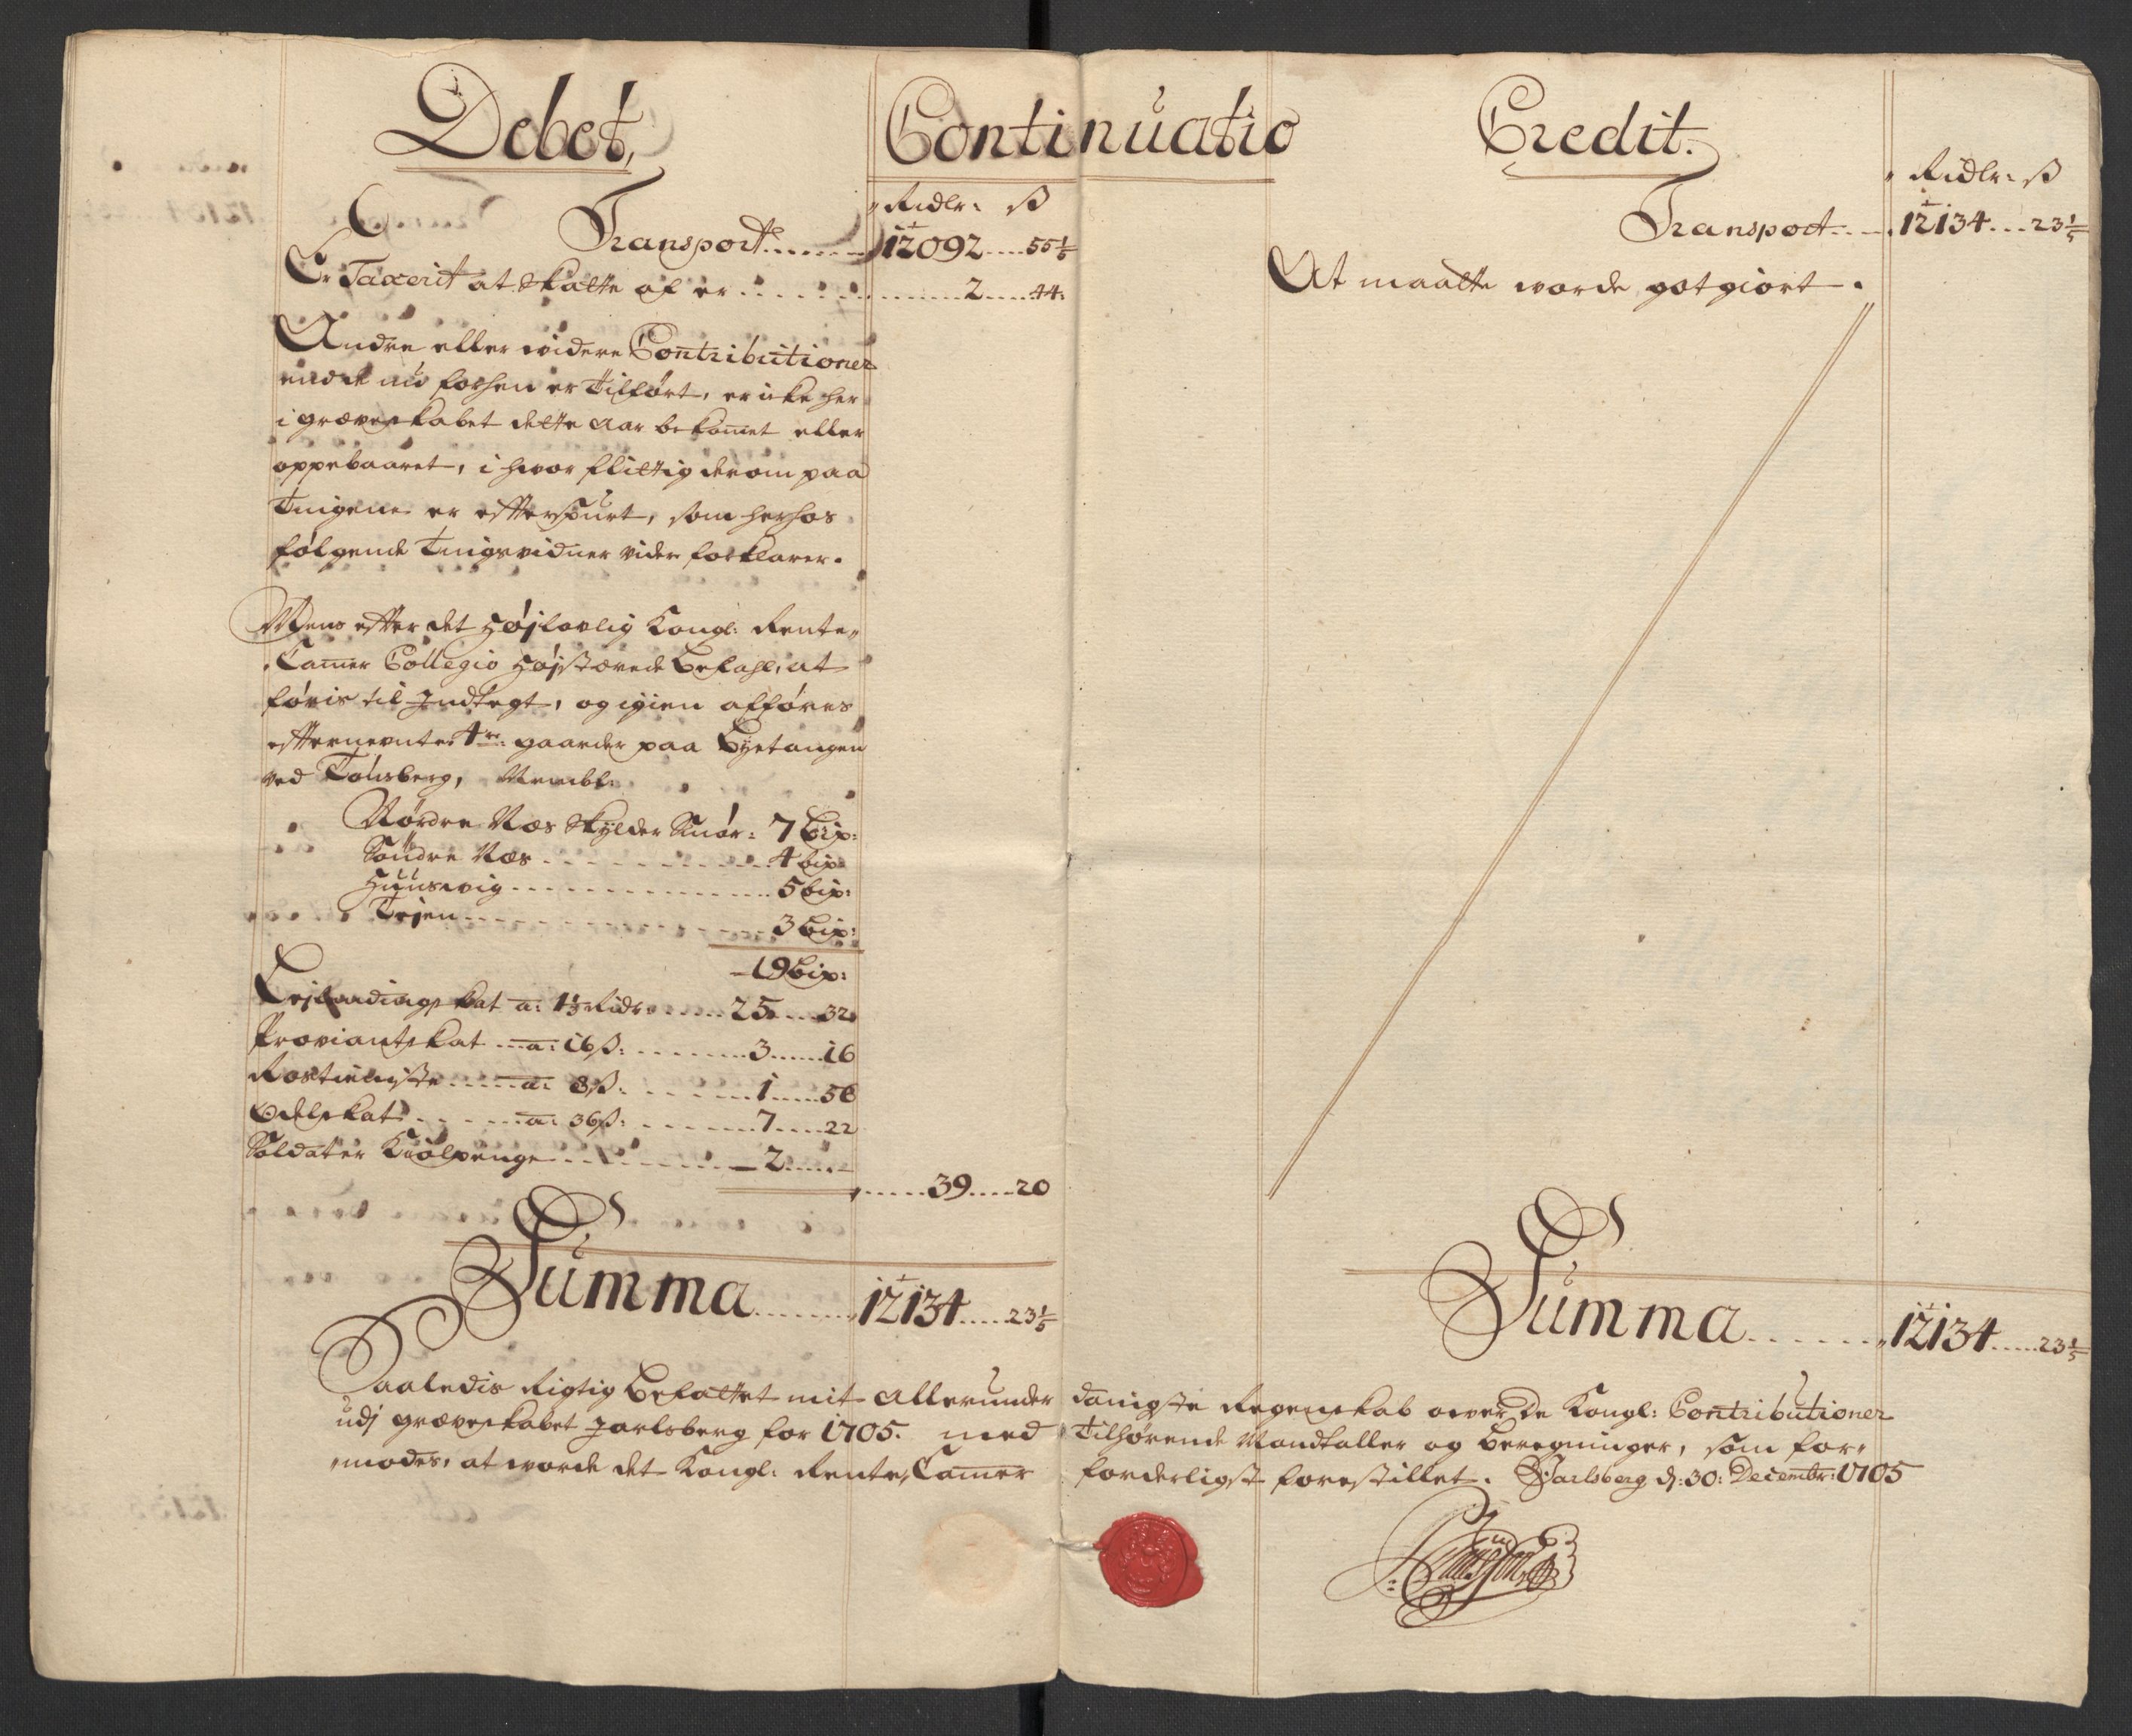 Debet,
Continuatio
Credit.
Ridlr: ß
Transport ....... 12092 .... 55 1/5
Er Taxerit at Skatte af er ........ 2 .... 44:
Andre eller widere Contributioner
end de nú forhen er Tilført, er icke her
i græveskabet dette aar bekom̄et eller
oppebaaret, i hvor flittig derom paa
Tingene er effterspurt, som herhos
følgende Tingsvidner vider forklarer.
Mens effter det Højlovlig Kongl: Rente,
Cam̄er Collegio Højstærede Befahl, at
føris til Indtegt, og igien afføres
effternevnte 4re: gaarder paa Byetangen
ved Tønsberg, Nembl:
Nordre Næs Skylder Smør: 7 Bip:
Søndre Næs ........ 4 bip:
Huusvig ........ 5 bip:
Tejen ........ 3 Bip:
19 Bip:
Lejlændings kat a: 1 1/3 Ridr ...... 25 .... 32
Proviantskat a: 16 ß: ........ 3 ..... 16
Rostieniste ..... a: 8 ß: ....... 1 .... 56
Odelskat ..... a: 36 ß: ....... 7 .... 22
Soldater Kaalpenge ........ 2 ....
39 .... 20
Summa ....... 12134 .... 23 1/5
Ridlr: ß
Transport .... 12134 ... 23 1/5
At maatte worde gotgiort.
Summa ....... 12134 ..... 23 1/5
Saaledis Rigtig Befattet mit Allerunder danigste Regenskab over de Kongl: Contributioner
udj græveskabet Jarlsberg for 1705. med Tilhørende Mandtaller og Beregninger, som for,
,modes, at worde det Kongl: Rente,Cam̄er forderligst forestillet. Jarlsberg d: 30: Decembr: 1705